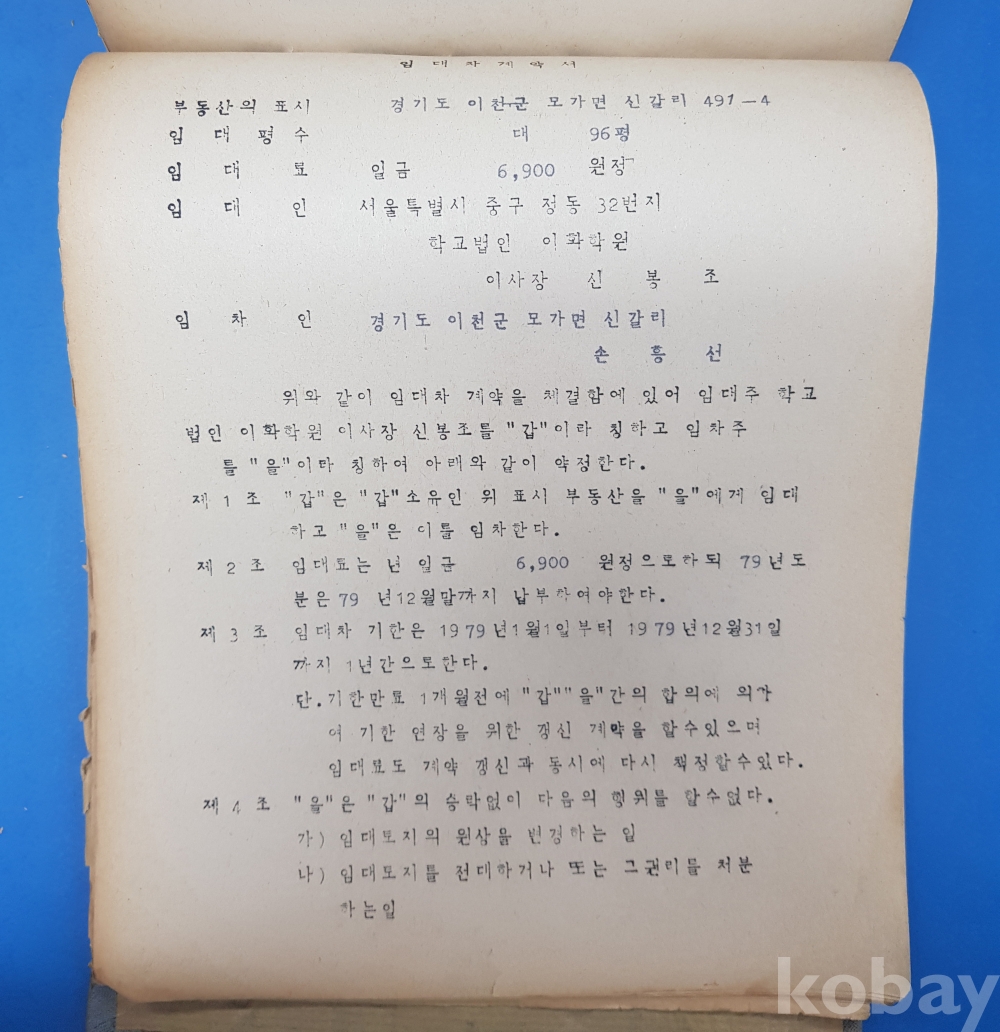 임 대 차 계 약 서
부동산의 표시 경기도 이천군 모가면 신갈리 491-4
임 대 평 수 대 96평
임 대 료 일금 6,900 원정
임 대 인 서울특별시 중구 정동 32번지
학교법인 이화학원
이사장 신 봉 조
임 차 인 경기도 이천군 모가면 신갈리
손 흥 선
위와 같이 임대차 계약을 체결함에 있어 임대주 학교
법인 이화학원 이사장 신봉조를 "갑"이라 칭하고 임차주
를 "을"이라 칭하여 아래와 같이 약정한다.
제 1 조 "갑"은 "갑"소유인 위 표시 부동산을 "을"에게 임대
하고 "을"은 이를 임차한다.
제 2 조 임대료는 년 일금 6,900 원정으로하되 79년도
분은79 년12월말까지 납부하여야한다.
제 3 조 임대차 기한은 1979년1월1일부터 1979년12월31일
까지 1년간으로한다.
단.기한만료 1개월전에 "갑""을"간의 합의에 의하
여 기한 연장을 위한 갱신 계약을 할수있으며
임대료도 계약 갱신과 동시에 다시 책정할수있다.
제 4 조 "을"은 "갑"의 승락없이 다음의 행위를 할수없다.
가) 임대토지의 원상을 변경하는 일
나) 임대토지를 전대하거나 또는 그권리를 처분
하는일
kobay